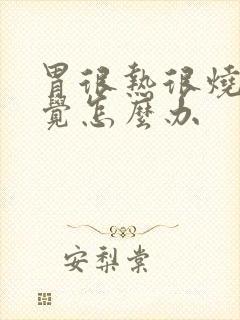 胃很熱很燒
覺怎麼办
安梨棠